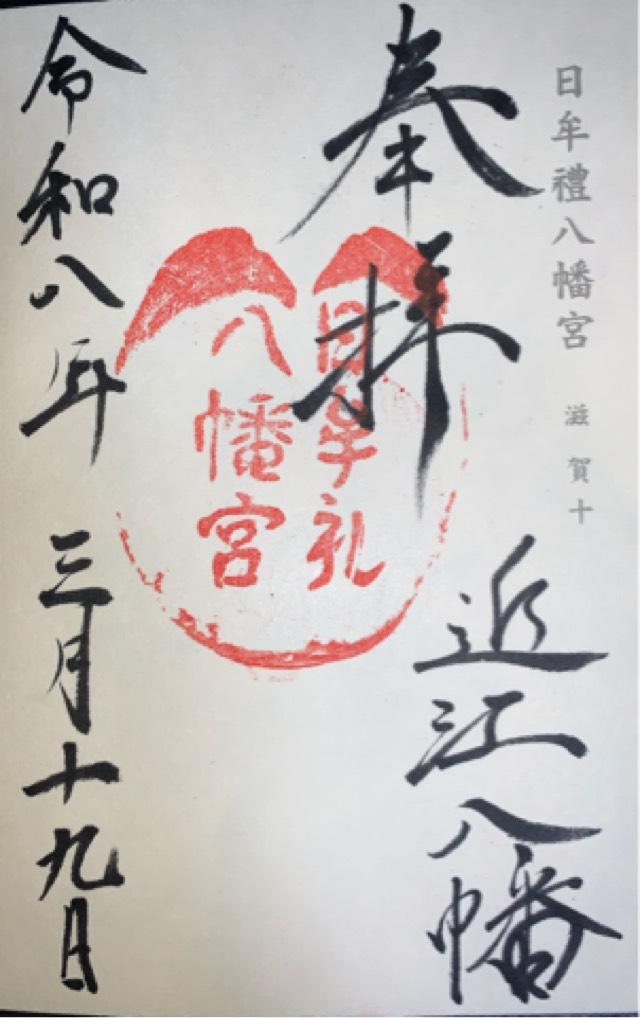 日牟禮八幡宮 滋賀十
奉拝
近江八幡
日牟礼
八幡宮
令和八年 三月十九日